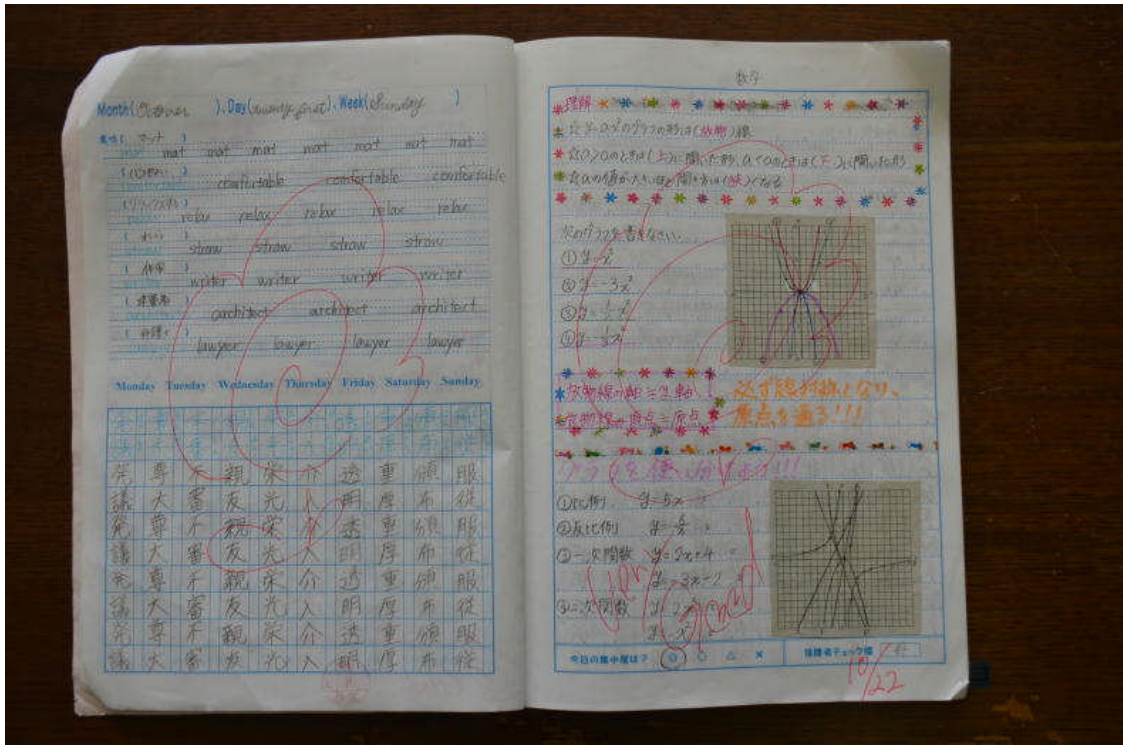 Month(October ), Day(twenty first), Week(Sunday )
意味( マット )
mat mat mat mat mat mat mat mat
comfortable comfortable comfortable comfortable
relax relax relax relax relax relax
( わら )
straw straw straw straw
( 作家 )
writer writer writer writer writer
( 建築者 )
architect architect architect architect
( 弁護士 )
lawyer lawyer lawyer lawyer lawyer
Monday Tuesday Wednesday Thursday Friday Saturday Sunday
発 尊 不 親 栄 介 透 重 頒 服
議 大 審 友 光 入 明 厚 布 従
発 尊 不 親 栄 介 透 重 頒 服
議 大 審 友 光 入 明 厚 布 従
発 尊 不 親 栄 介 透 重 頒 服
議 大 審 友 光 入 明 厚 布 従
発 尊 不 親 栄 介 透 重 頒 服
議 大 審 友 光 入 明 厚 布 従
数学
理解
☆y=ax²のグラフの形は(放物)線
☆a>0のときは(上)に開いた形、a<0のときは(下)に開いた形
☆aの値が大きいほど開き方は(狭)くなる
次のグラフを書きなさい...
①y=x²
②y=-3x²
③y=½x²
④y=-½x²
放物線の軸=y軸
放物線の頂点=原点
必ず線対称となり、
原点を通る!!!
グラフを使い分けよう!!!
①比例 y=5x
②反比例
③一次関数 y=2x+4
y=-3x-2
④二次関数 y=2x²
y=-x²
Very Good
今日の集中度は? ◎ ○ △ ×
保護者チェック欄
10/22